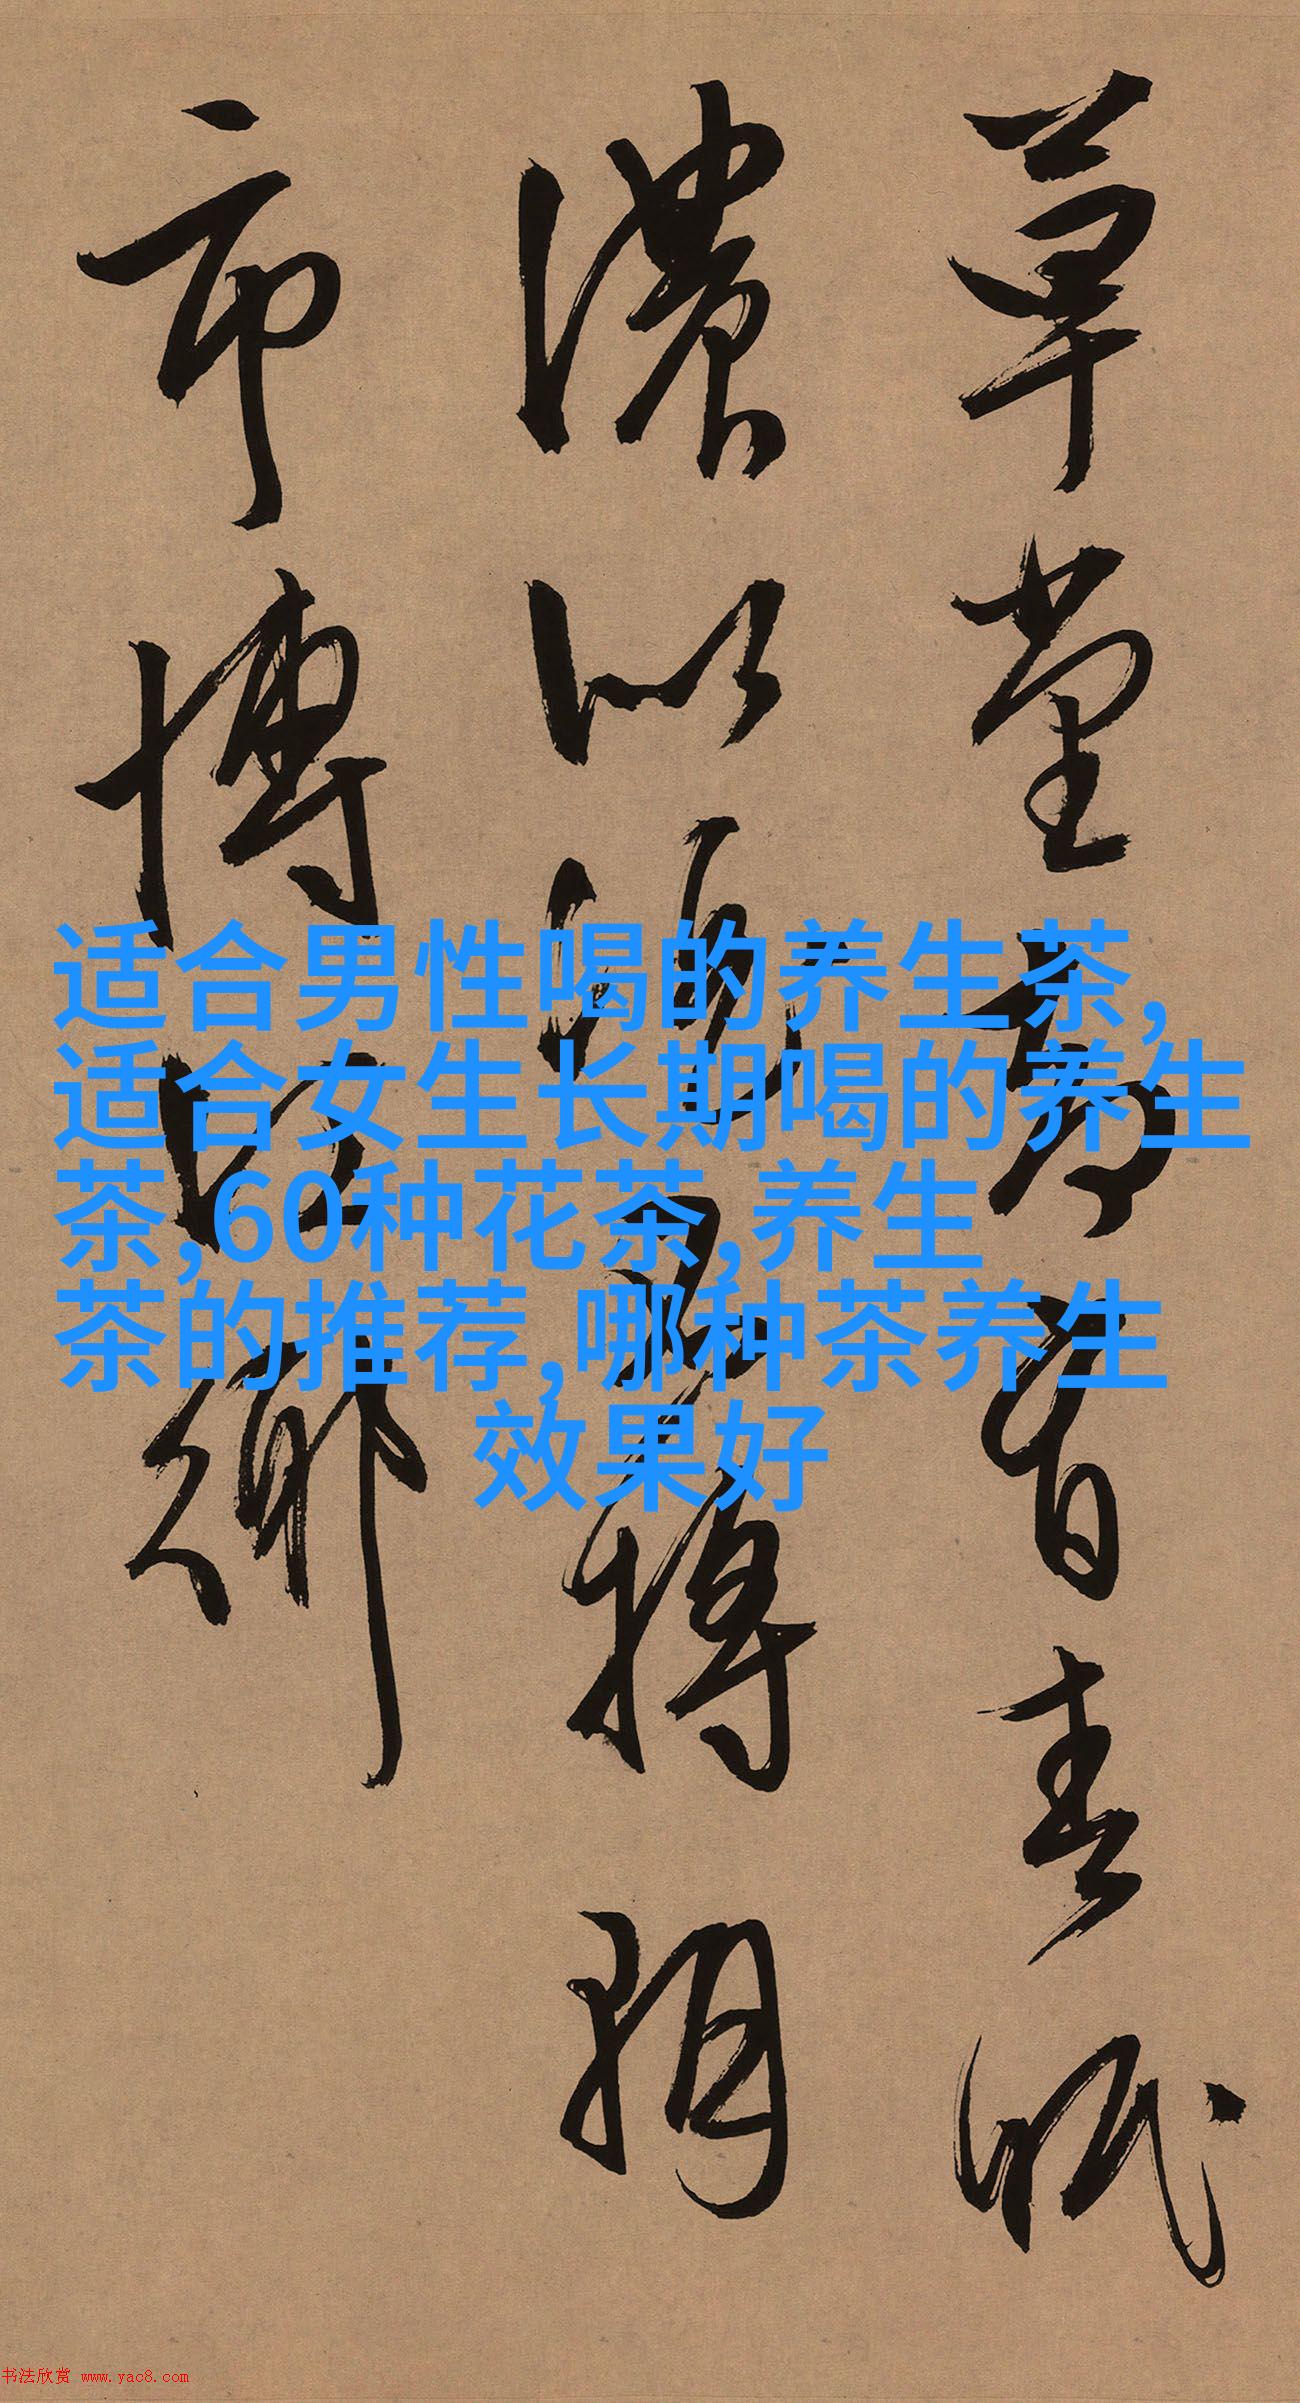 草堂春眠
濃以將
市博江鄉
适合男性喝的养生茶,
适合女生长期喝的养生
茶,60种花茶,养生
茶的推荐,哪种茶养生
效果好
书法欣赏 www.yac8.com